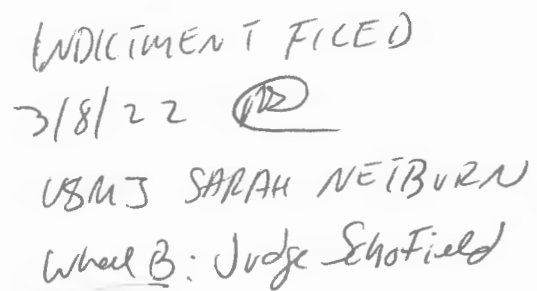 INDICTMENT FILED
3/8/22
USMJ SARAH NETBURN
Wheel B: Judge Schofield